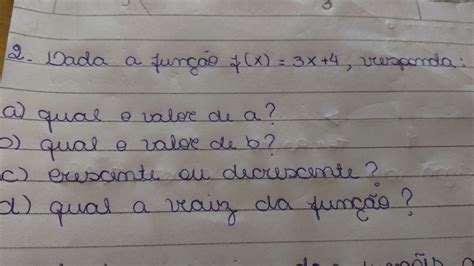 2. Dada a função f(x) = 3x+4, responda:
a) qual o valor de a?
b) qual o valor de b?
c) crescente ou decrescente?
d) qual a raiz da função?